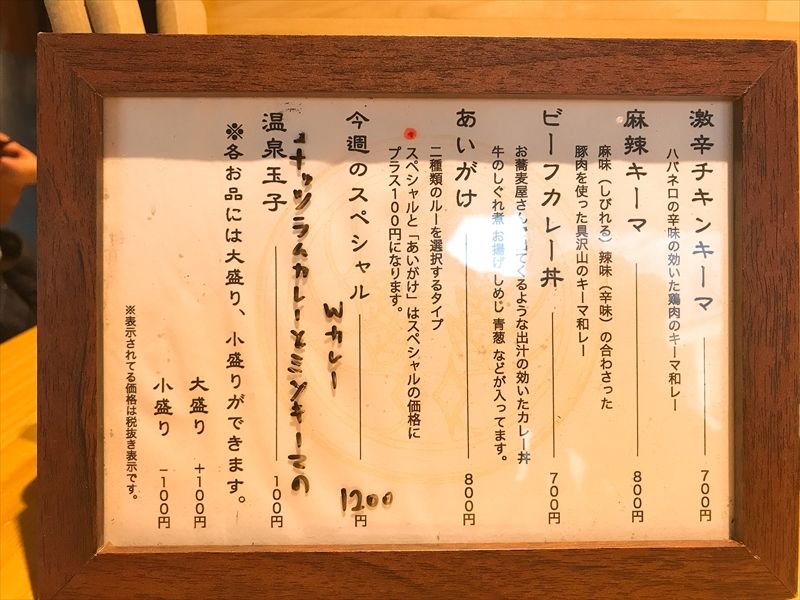 激辛チキンキーマ 700円
ハバネロの辛味の効いた鶏肉のキーマ和レー
麻辣キーマ 800円
麻味（しびれる）辣味（辛味）の合わさった
豚肉を使った具沢山のキーマ和レー
ビーフカレー丼 700円
お蕎麦屋さんで出てくるような出汁の効いたカレー丼
牛のしぐれ煮 お揚げ しめじ 青葱 などが入ってます。
あいがけ 800円
二種類のルーを選択するタイプ
スペシャルと「あいがけ」はスペシャルの価格に
プラス100円になります。
今週のスペシャル 1200円
「ナッツラムカレーとミンキーマの
Wカレー
温泉玉子 100円
※各お品には大盛り、小盛りができます。
大盛り +100円
小盛り -100円
※表示されてる価格は税抜き表示です。